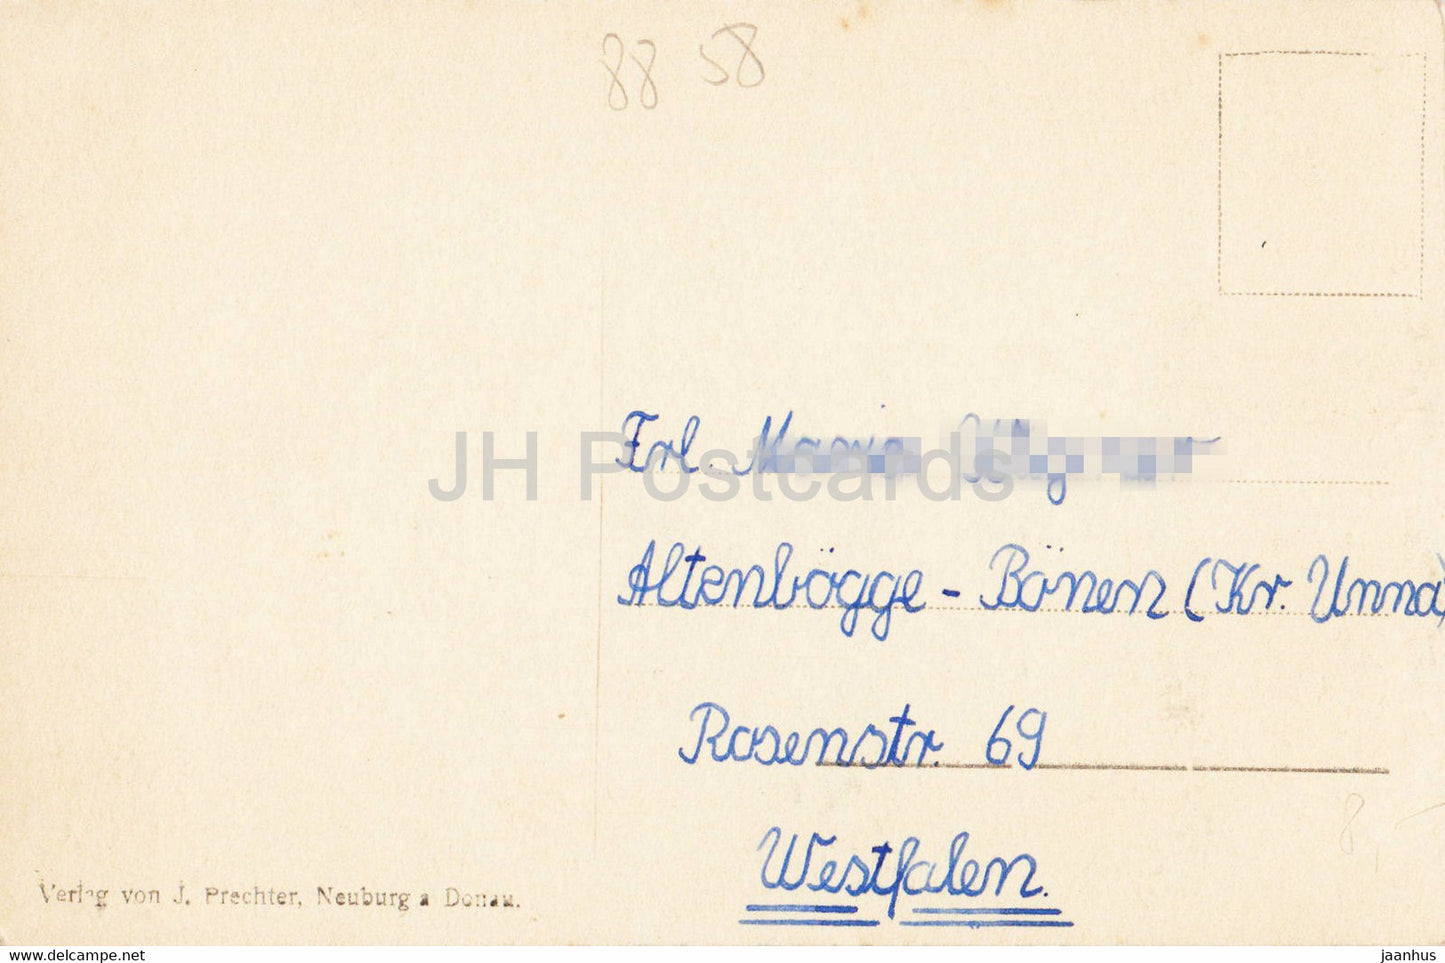 88 58
JH Postcards
Frl.
Altenbögge - Bönen (Kr. Unna)
Rosenstr. 69
Westfalen.
8,-
Verlag von J. Prechter, Neuburg a Donau.
www.delcampe.net
jaanhus